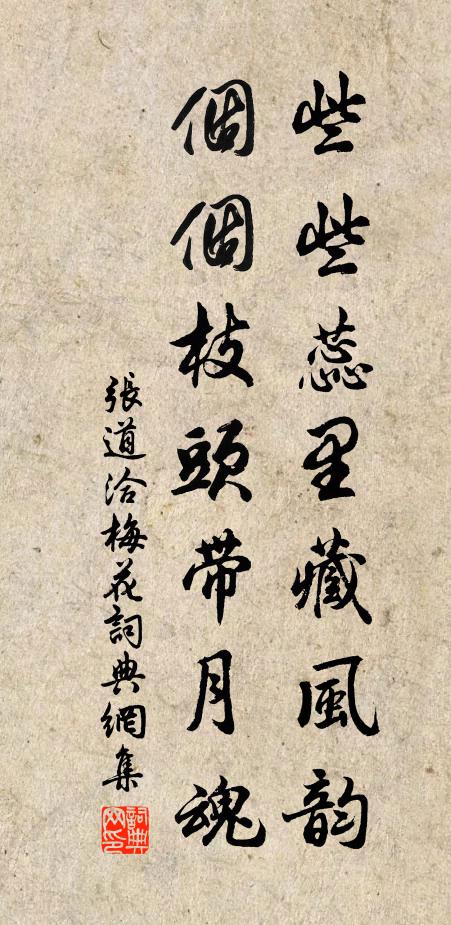 些些蕊里藏風韵
個個枝頭带月魂
張道洽梅花詞典網集
詞典网印